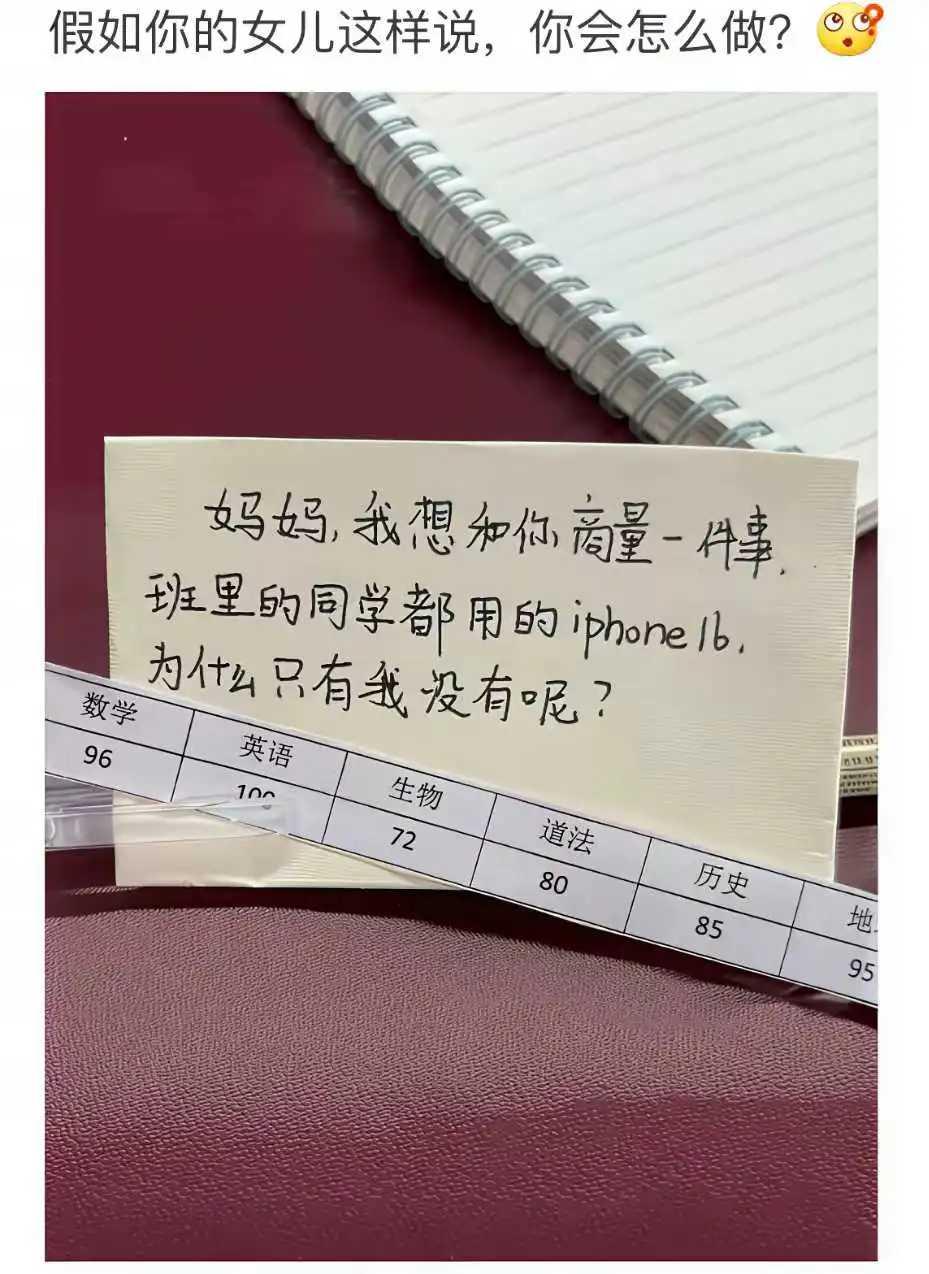 假如你的女儿这样说，你会怎么做？
妈妈，我想和你商量一件事，
班里的同学都用的iphone16，
为什么只有我没有呢？
数学 英语 生物 道法 历史
96 100 72 80 85 95